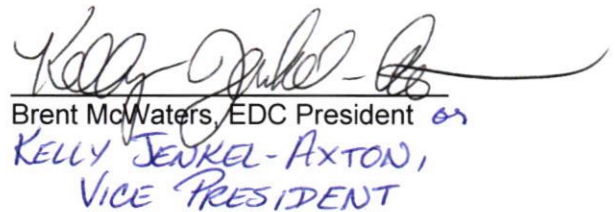 Kelly Jenkel-A
Brent McWaters, EDC President or
KELLY JENKEL-AXTON,
VICE PRESIDENT